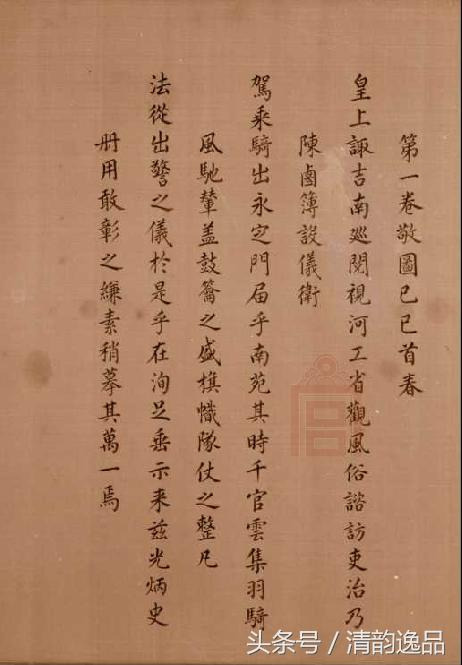 第一卷敬圖己巳首春
皇上諏吉南巡閱視河工省觀風俗諮訪吏治乃
陳鹵簿設儀衛
駕乘騎出永定門屆乎南苑其時千官雲集羽騎
風馳輦盖鼓籥之盛旗幟隊仗之整凡
法從出警之儀於是乎在洵足垂示来兹光炳史
冊用敢彰之縑素稍摹其萬一焉
头条号／清韵逸品